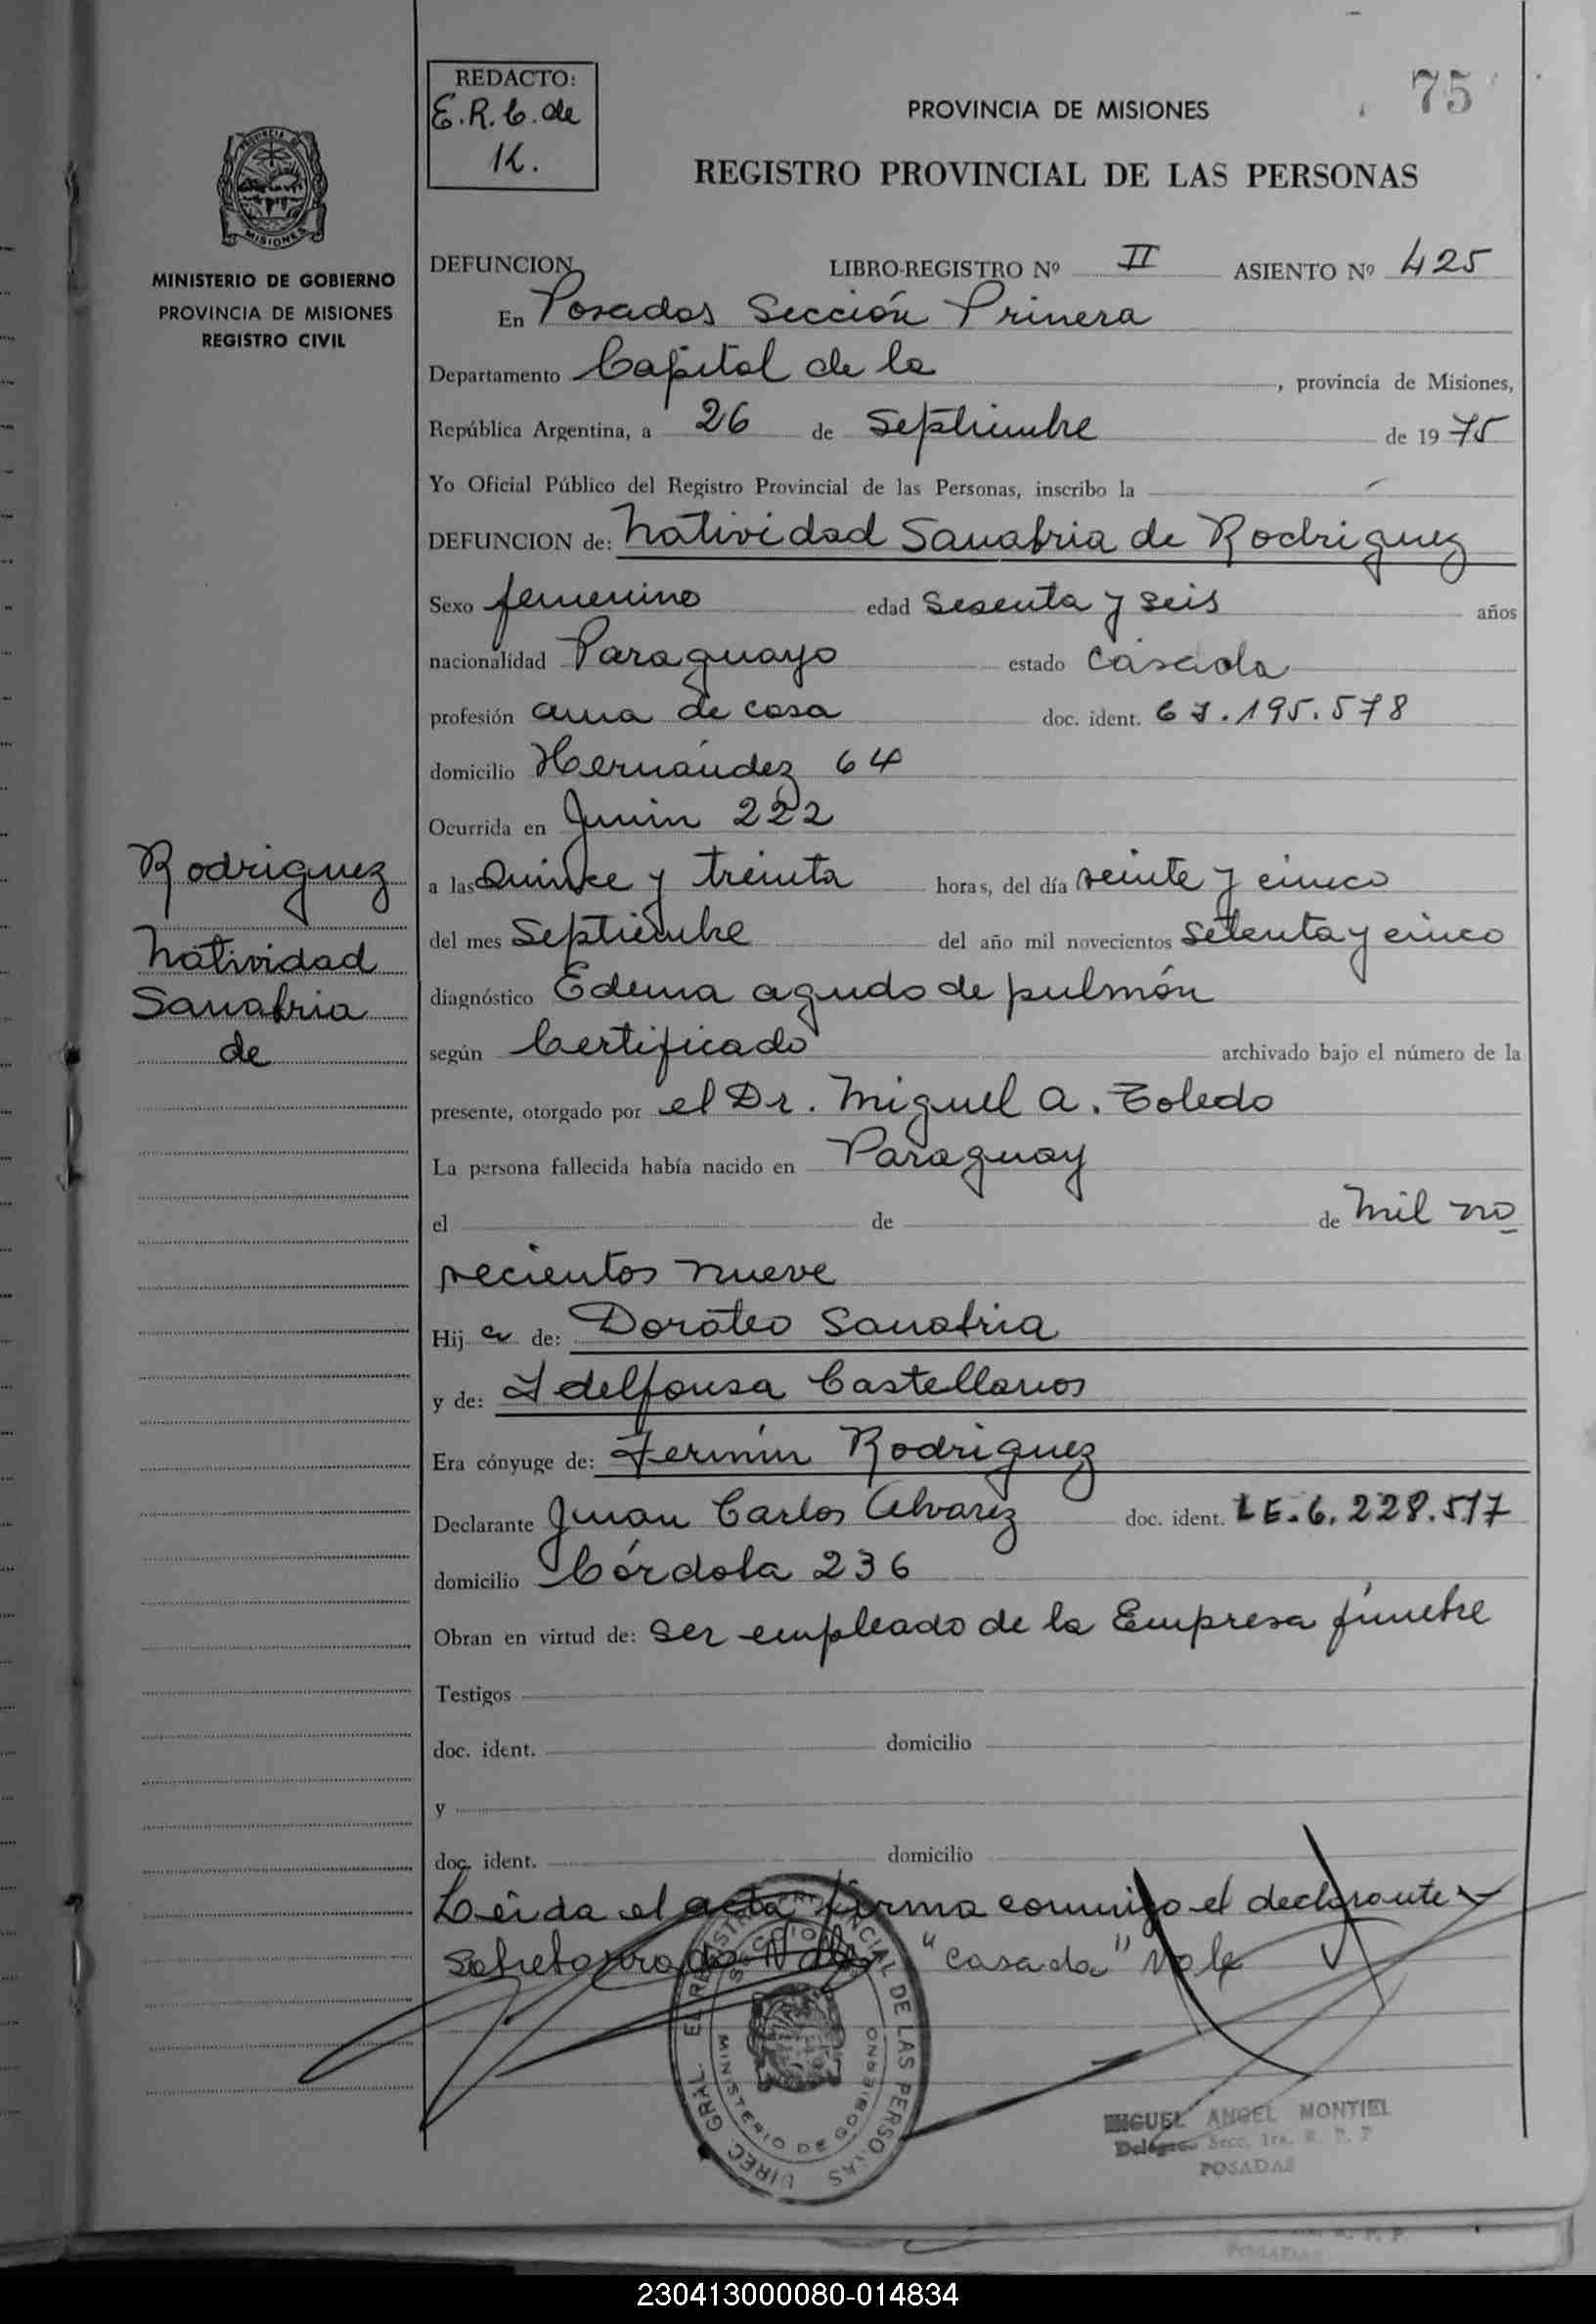 REDACTO:
E.R.C. de
K.
75
PROVINCIA DE MISIONES
REGISTRO PROVINCIAL DE LAS PERSONAS
PROVINCIA DE
MISIONES
MINISTERIO DE GOBIERNO
PROVINCIA DE MISIONES
REGISTRO CIVIL
DEFUNCION LIBRO-REGISTRO Nº II ASIENTO Nº 425
En Posadas Sección Primera
Departamento Capital de la , provincia de Misiones,
República Argentina, a 26 de Septiembre de 1975
Yo Oficial Público del Registro Provincial de las Personas, inscribo la
DEFUNCION de: Natividad Sanabria de Rodriguez
Sexo femenino edad sesenta y seis años
nacionalidad Paraguaya estado casada
profesión ama de casa doc. ident. 67.195.578
domicilio Hernández 64
Ocurrida en Junin 222
a las Quince y treinta horas, del día veinte y cinco
del mes Septiembre del año mil novecientos setenta y cinco
diagnóstico Edema agudo de pulmón
según Certificado archivado bajo el número de la
presente, otorgado por el Dr. Miguel A. Toledo
La persona fallecida había nacido en Paraguay
el de de mil no
vecientos nueve
Hija de: Doroteo Sanabria
y de: Idelfonsa Castellanos
Era cónyuge de: Fermín Rodriguez
Declarante Juan Carlos Alvarez doc. ident. LE. 6.228.517
domicilio Córdoba 236
Obran en virtud de: ser empleado de la Empresa fúnebre
Testigos
doc. ident. domicilio
y
doc. ident. domicilio
Leída el acta firma conmigo el declarante
Sobreborrado "casada" Vale
Rodriguez
Natividad
Sanabria
de
DIREC. GRAL. EL REGISTRO PROVINCIAL DE LAS PERSONAS
MINISTERIO DE GOBIERNO
MIGUEL ANGEL MONTIEL
Delegado Secc. 1ra. R. P. P
POSADAS
230413000080-014834